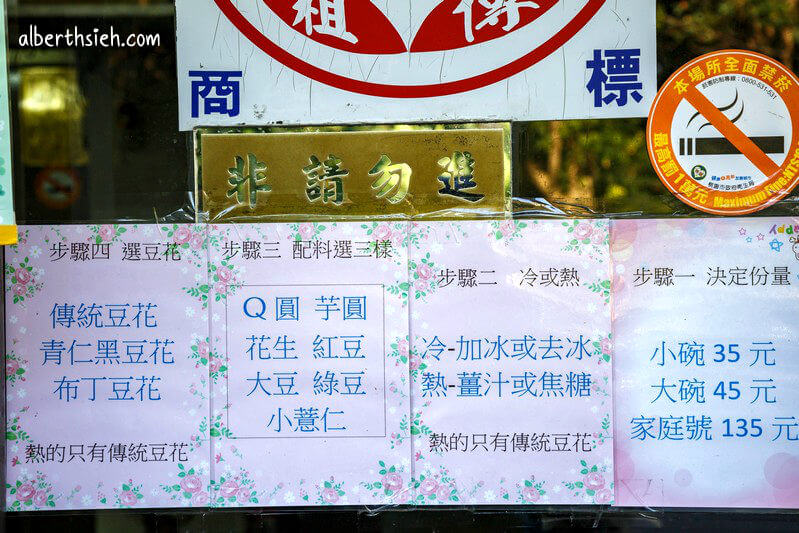 alberthsieh.com
祖 傳
商 標
非請勿進
本場所全面禁菸
菸害防制專線：0800-531-531
桃園市政府衛生局
最高罰1萬元
步驟一 決定份量
小碗 35 元
大碗 45 元
家庭號 135 元
步驟二 冷或熱
冷-加冰或去冰
熱-薑汁或焦糖
熱的只有傳統豆花
步驟三 配料選三樣
Q圓 芋圓
花生 紅豆
大豆 綠豆
小薏仁
步驟四 選豆花
傳統豆花
青仁黑豆花
布丁豆花
熱的只有傳統豆花